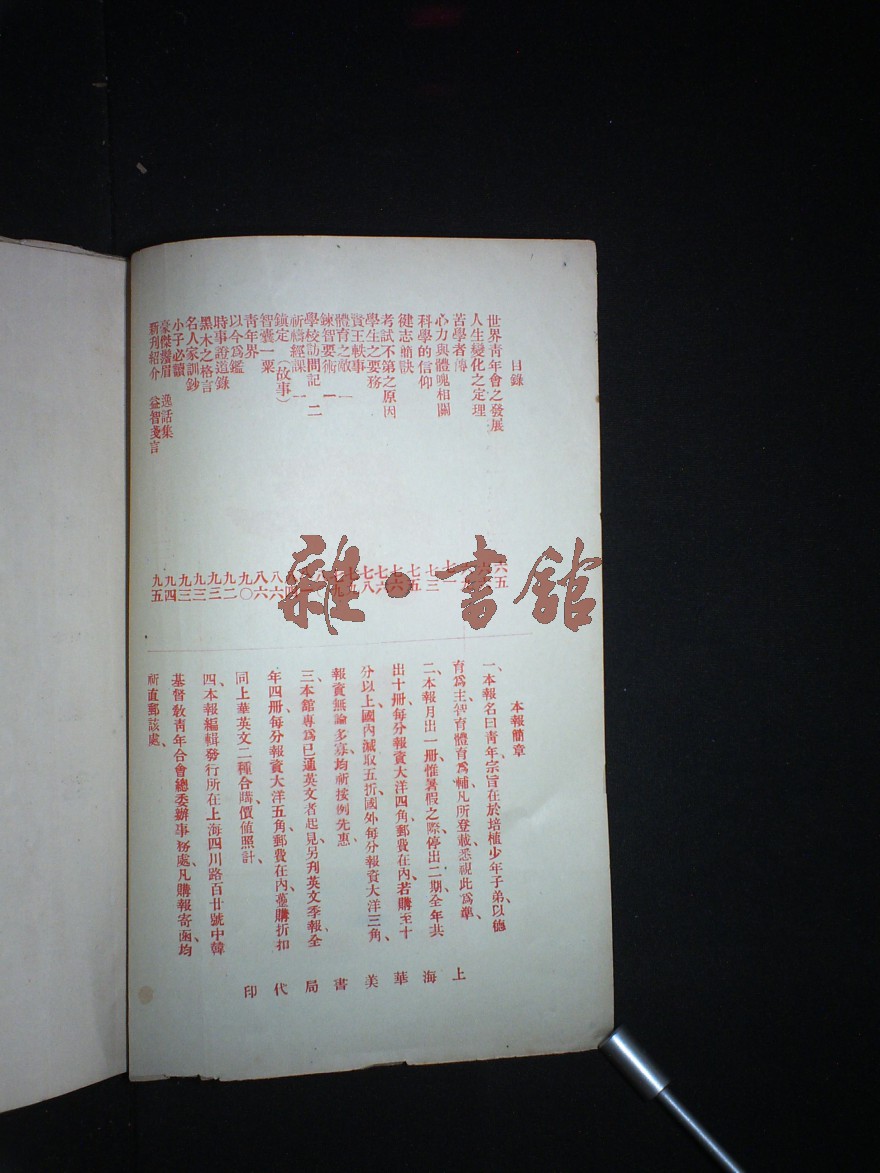 目錄
世界靑年會之發展 六五
人生變化之定理
苦學者傳
心力與體魄相關
科學的信仰 七三
健志萠訣 七五
考試不第之原因 七六
學生之要務 七六
賞王軼事 七八
體育之敵 一
鍊智要術 一
學校訪問記 二
祈禱經課 一
鎭定 (故事) 八六
智囊一粟 八六
靑年界 九〇
以今爲鑑 九二
時事證道錄 九三
黑木之格言 九三
名人家訓鈔 九三
小子必讀 九四
豪傑鬚眉 逸話集
新刋紹介 益智戔言 九五
雜·書館
本報簡章
一、本報名曰靑年、宗旨在於培植少年子弟、以德
育爲主、智育體育爲輔、凡所登載、悉視此爲準、
二、本報月出一册、惟暑假之際、停出二期、全年共
出十册、每分報資大洋四角、郵費在內、若購至十
分以上、國內減取五折、國外每分報資大洋三角、
報資無論多寡、均祈按例先惠、
三、本舘專爲已通英文者起見、另刋英文季報、全
年四册、每分報資大洋五角、郵費在內、躉購折扣
同上、華英文二種合購、價値照計、
四、本報編輯發行所、在上海四川路百廿號中韓
基督敎靑年合會總委辦事務處、凡購報寄函、均
祈直郵該處、
上海華美書局代印